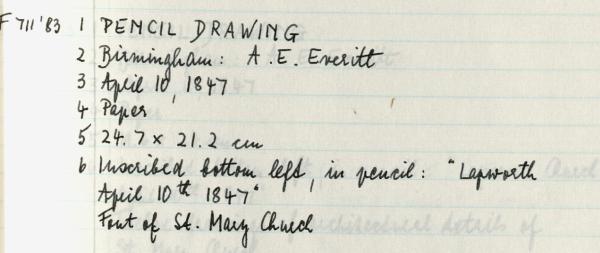 F 711'83 1 PENCIL DRAWING
2 Birmingham: A.E. Everitt
3 April 10, 1847
4 Paper
5 24.7 x 21.2 cm
6 Inscribed bottom left, in pencil: "Lapworth
April 10th 1847"
Font of St. Mary Church